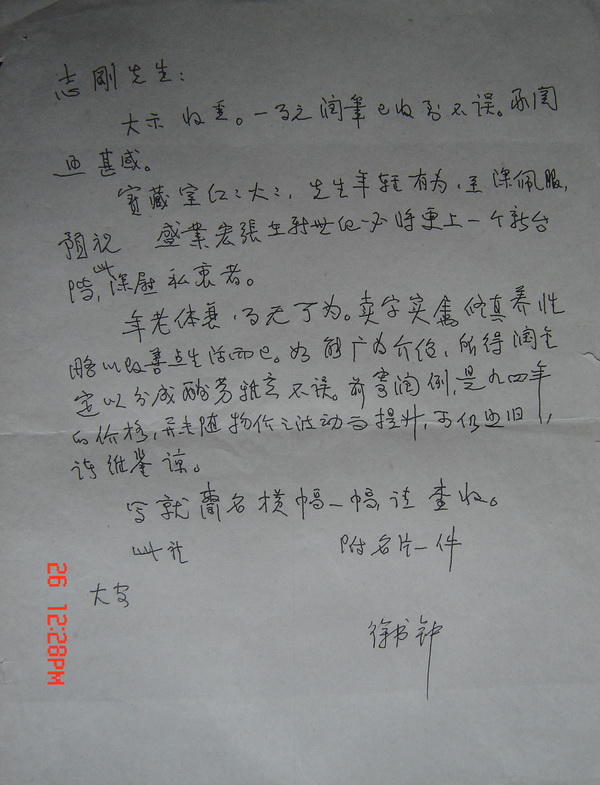 志刚先生：
大示收悉。一百元润笔已收到不误。承闰
甚感。
宝藏室红红火火，先生年轻有为，至深佩服，
预祝 盛业宏张在新世纪必将更上一个新台
阶，此深慰私衷者。
年老体衰，百无可为。卖字实属修真养性
略以改善点生活而已。如能广为介绍，所得润金
定以分成酬劳雅意不误。前寄润例，是九四年
的价格，并未随物价之波动而提升，而仍照旧，
请维鉴谅。
写就斋名横幅一幅，请查收。
此礼 附名片一件
大安
徐书钟
26 12:28PM